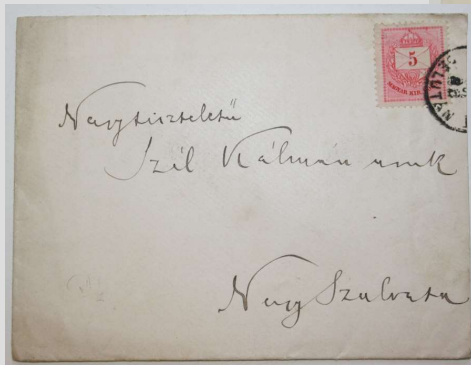 5
MAGYAR KIR.
Nagytiszteletű
Szél Kálmán urnak
Nagy Szalonta